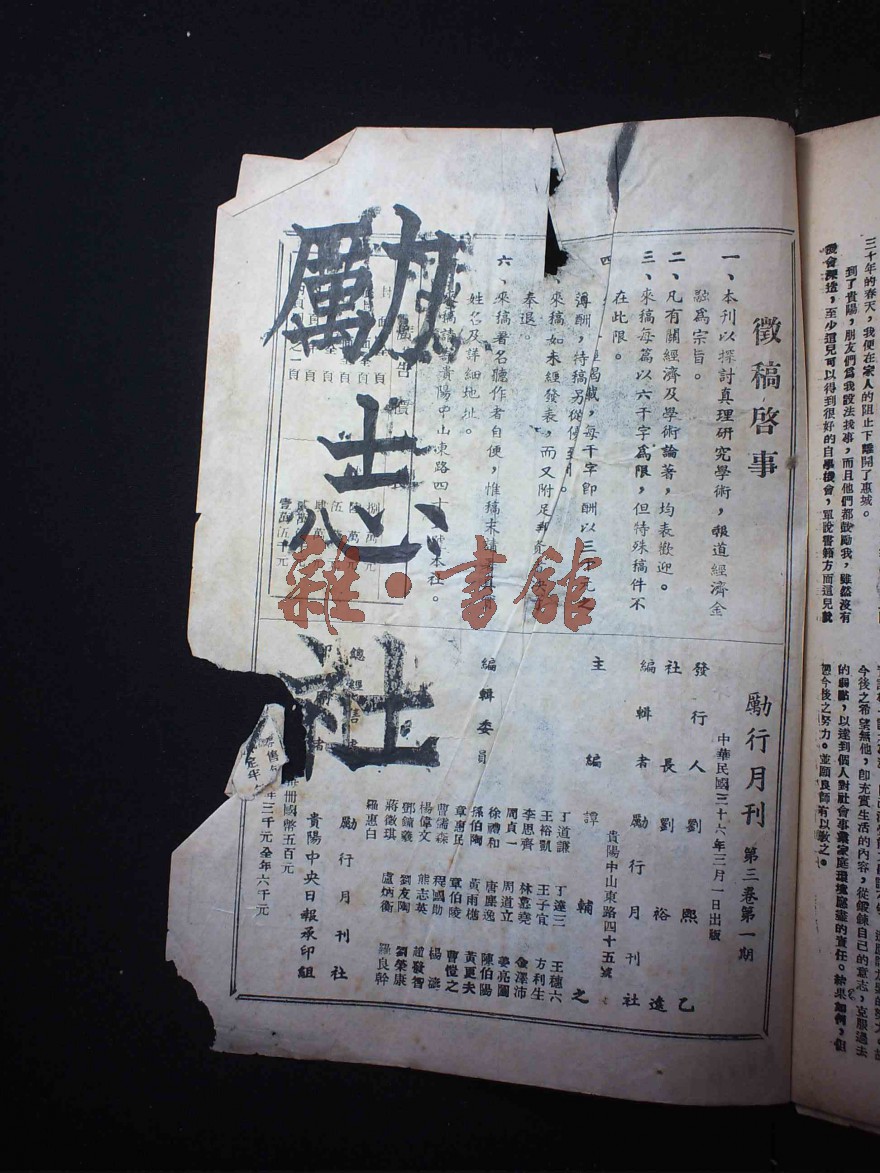 徵稿啓事
一、本刊以探討真理研究學術，報道經濟金
融爲宗旨。
二、凡有關經濟及學術論著，均表歡迎。
三、來稿每篇以六千字爲限，但特殊稿件不
在此限。
四
揭載，每千字卽酬以三
薄酬，特稿另從優
來稿如未經發表，而又附足郵資
奉退。
六、來稿署名聽作者自便，惟稿末請
姓名及詳細地址。
貴陽中山東路四十 本社。
廣告價
勵志社
雜·書館
勵行月刊 第三卷第一期
中華民國三十六年三月一日出版
發行人 劉熙乙
社長 劉裕遠
編輯者 勵行月刊社
貴陽中山東路四十五號
主編 譚輔之
編輯委員
丁道謙 丁達三 王穗六
王裕凱 王子宜 方利生
李思齊 林藹堯 金澤沛
周貞一 周道立 姜亮圖
徐禮和 唐塵逸 陳伯陽
孫伯陶 黃雨樵 黃更夫
章惠民 章伯陵 曹愷之
曹霈森 程國助 楊濤
楊偉文 熊志英 趙發智
鄧鏡羲 劉友陶 劉榮康
蔣徵琪 盧炳衞 羅良幹
羅惠白
總經售者 勵行月刊社
貴陽中央日報承印組
每冊國幣五百元
三千元全年六千元
三十年的春天，我便在家人的阻止下離開了惠城。
到了貴陽，朋友們爲我設法找事，而且他們都鼓勵我，雖然沒有
機會深造，至少這兒可以得到很好的自學機會，單說書籍方面這兒就
今後之希望無他，卽充實生活的內容，從鍛鍊自已的意志，克服過去
的弱點，以達到個人對社會事業家庭環境應盡的責任。結果如何，但
憑今後之努力。並願良師有以教之。